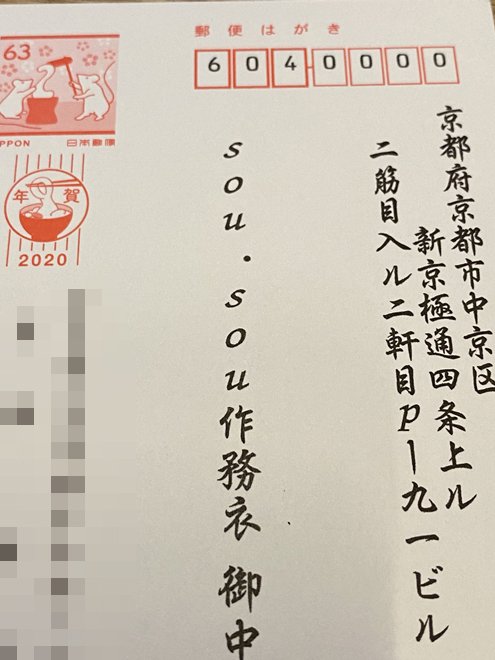 郵便はがき
6040000
京都府京都市中京区
新京極通四条上ル
二筋目入ル二軒目P－九一ビル
sou・sou作務衣 御中
63
NIPPON 日本郵便
年賀
2020